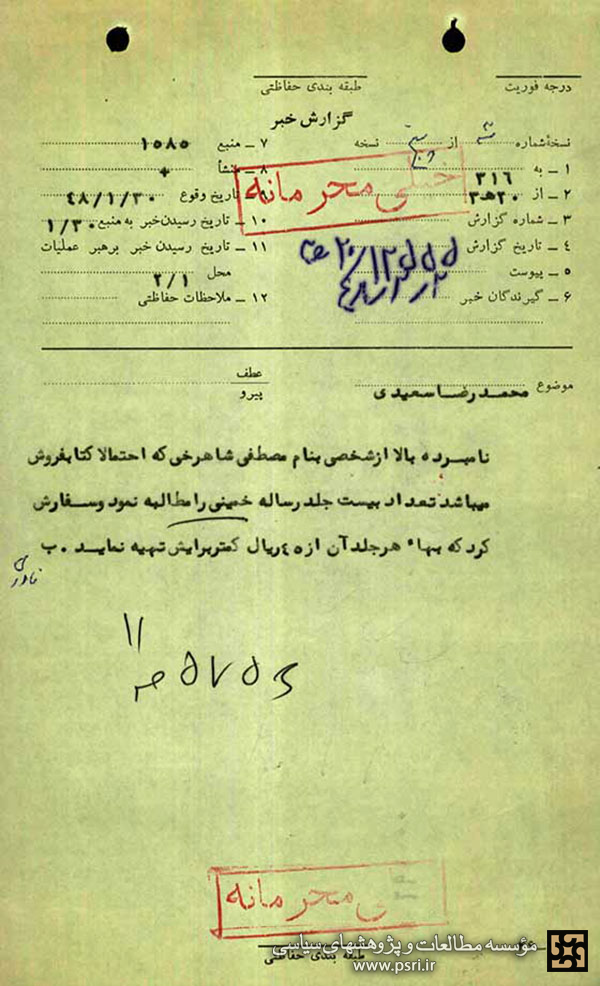 درجه فوریت
طبقه بندی حفاظتی
گزارش خبر
نسخهٔ شماره ۳ از پنج نسخه
۱ – به ۳۱۶
۲ – از ۲۰ﻫ۳
۳ – شماره گزارش
۴ – تاریخ گزارش
۵ – پیوست
۶ – گیرندگان خبر
۷ – منبع ۱۵۸۵
۸ – منشأ +
تاریخ وقوع ۴۸/۱/۳۰
۱۰ – تاریخ رسیدن خبر به منبع ۱/۳۰
۱۱ – تاریخ رسیدن خبر برهبر عملیات
محل ۲/۱
۱۲ – ملاحظات حفاظتی
خیلی محرمانه
موضوع محمد رضا سعیدی
عطف
پیرو
نامبرده بالا از شخصی بنام مصطفی شاهرخی که احتمالا کتابفروش
میباشد تعداد بیست جلد رساله خمینی را مطالبه نمود و سفارش
کرد که بهاء هر جلد آن از ۴۵ ریال کمتر برایش تهیه نماید . ب
خیلی محرمانه
طبقه بندی حفاظتی
مؤسسه مطالعات و پژوهشهای سیاسی
www.psri.ir